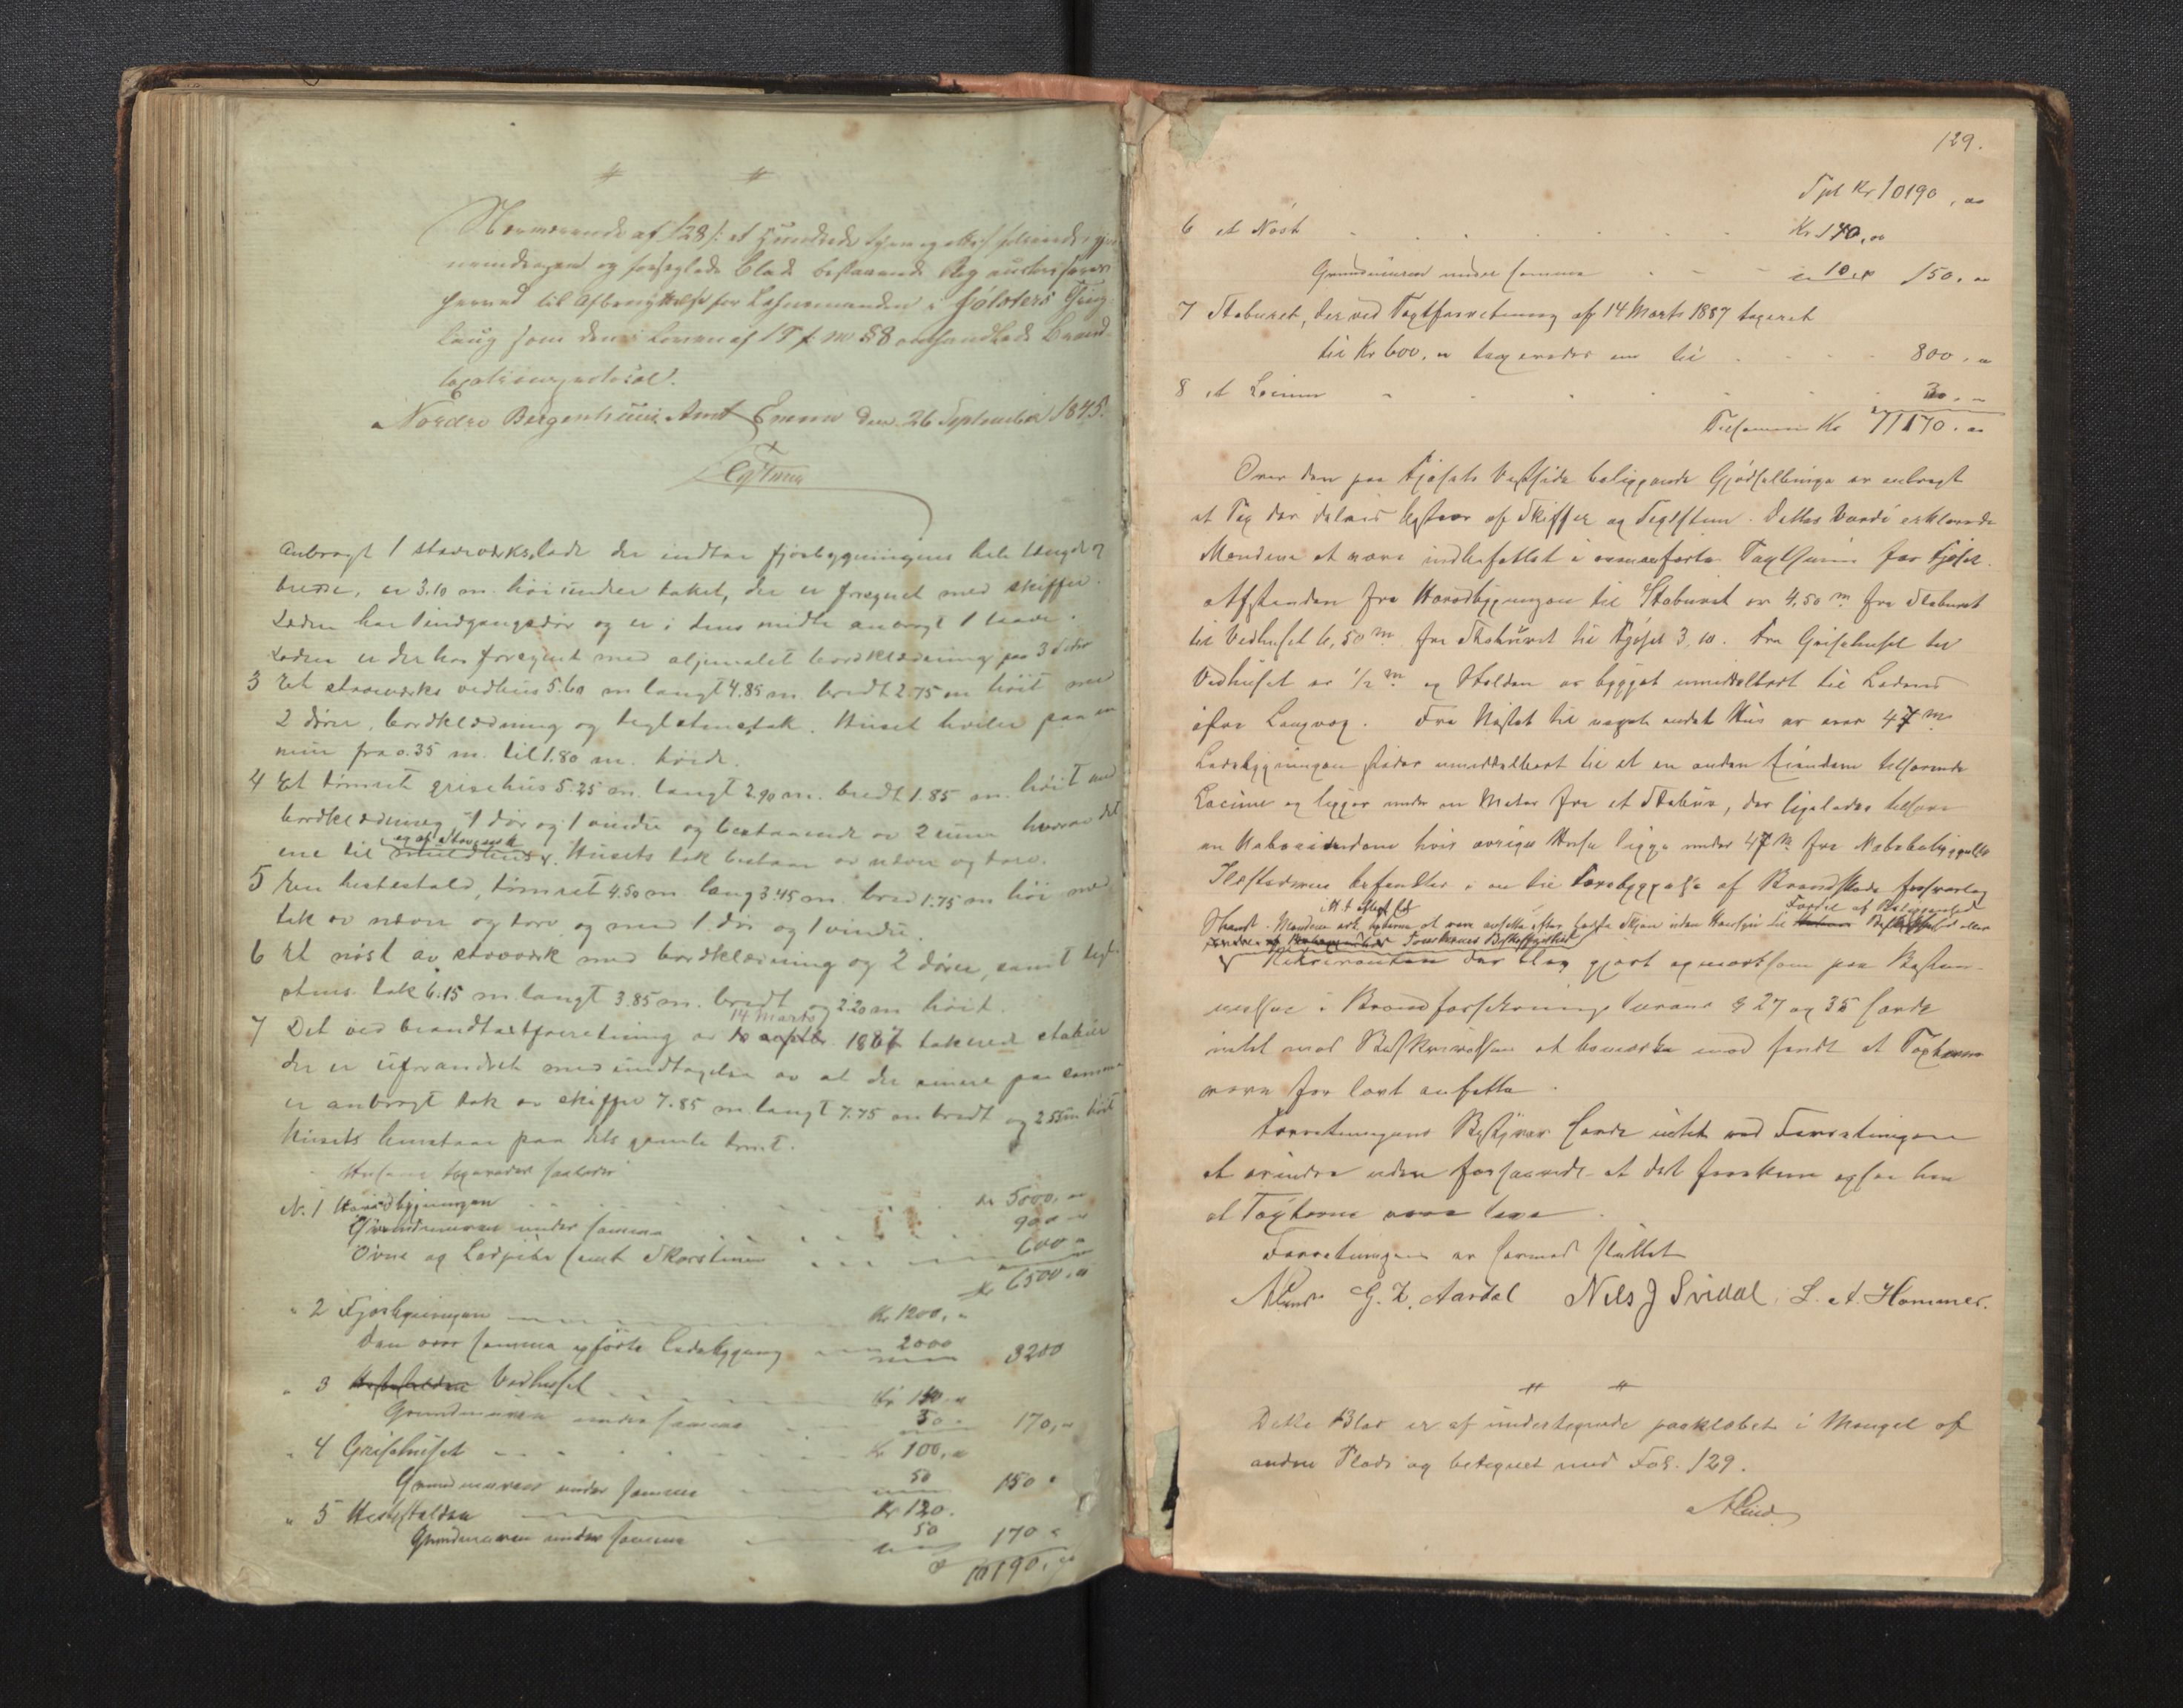 Nærværende af 128 /: et Hundrede tyve og otte :/ folierede, gjen-
nemdragne og forseglede Blade bestaaende Bog autoriseres
herved til Afbenyttelse for Lehnsmanden i Jølsters Thing-
laug som den i Loven af 19 f. M. § 8 omhandlede Brand-
taxationsprotocol.
Nordre Bergenhuus Amt den 26 September 1845.
anbragt 1 stavværkslade der indtar fjøsbygningens hele længde &
bredde, er 3.10 m. høi under taket, der er foregnet med skiffer.
Laden har 1 indgangsdør og er i dens midte anbragt 1 laave.
Laden er der hos foregnet med oljemalet bordklædning paa 3 sider
3 Et stavværks vedhus 5.60 m langt 4.85 m. bredt 2.75 m høit med
2 døre, bordklædning og teglstenstak. Huset hviler paa en
mur fra 0.35 m. til 1.80 m. høide.
4 Et tømret grisehus 5.25 m. langt 2.90 m. bredt 1.85 m. høit med
bordklædning 1 dør og 1 vindu og bestaaende av 2 rum hvorav det
og af Stavværk
ene til Husets tak bestaar av næver og torv.
5 En hestestald, tømret 4.50 m lang 3.45 m. bred 1.75 m høi med
tak av næver og torv og med 1 dør og 1 vindu.
6 Et nøst av stavværk med bordklædning og 2 døre, samt tegl-
stens tak 6.15 m. langt 3.85 m. bredt og 2.20 m høit.
14 Marts
7 Det ved brandtaxtforretning av 1887 takserede stabur
der er uforandret med undtagelse av at der senere paa samme
er anbragt tak av skiffer 7.85 m langt 7.75 m bredt og 2.55 m høit
Husets henstaar paa dets gamle tomt.
Husene taxeredes saaledes
No. 1 Hovedbygningen Kr 5000,00
Grundmuren under samme 900
Ovne og Ledpibe samt Skorstenen 600
Kr 6500,00
" 2 Fjøsbygningen Kr 1200,
Den over samme opførte Ladebygning 2000 3200
" 3 Hestestalden Vedhuset Kr 140
Grundmuren under samme 30 170,
" 4 Grisehuset Kr 100,
Grundmuren under samme 50 150
" 5 Hestestalden Kr 120.
Grundmuren under samme 50 170
10190.
129.
Tpt Kr 10190,
6 et Nøst Kr 140,
Grundmuren under samme 10 150,
7 Staburet, der ved Taxtforretning af 14 Marts 1887 taxeret
til Kr 600, taxeredes nu til 800,
8 et Locum 30,
Tilsammen Kr 11170.
Over den paa Fjøsets Vestside beliggende Gjødselbinge er anbragt
et Tag der delvis bestaar af Skiffer og Teglsten. Dettes Værdi erklærede
Mændene at være indbefattet i ovenanførte Taxtsum for Fjøset.
Afstanden fra Hovedbygningen til Staburet er 4,50 m. fra Staburet
til Vedhuset 6,50 m fra Staburet til Fjøset 3,10. Fra Grisehuset til
Vedhuset er 1/2 m og Stalden er bygget umiddelbart til Ladens
øfre Langvæg. Fra Nøstet til noget andet Hus er over 47 m.
Ladebygningen støder umiddelbart til et en anden Eiendom tilhørende
Locum og ligger under en Meter fra et Stabur, der ligeledes tilhører
en Naboeiendom hvis øvrige Huse ligge under 47 M. fra Nabobebyggelse
Ildstederne befandtes i en til Forebyggelse af Brandskade forsvarlig
Stand. Mændene erkl. Taxterne at være ansatte efter bedste Skjøn uden Hensyn til
Rekvirenten der blev gjort opmærksom paa Bestem-
melsen i Brandforsikrings Lovens § 27 og 35 havde
intet mod Beskrivelsen at bemærke med fandt at Taxterne
vare for lavt ansatte.
Forretningens Bestyrer havde intet ved Forretningen
at erindre uden forsaavidt at det forekom ogsaa ham
at Taxterne vare lave.
Forretningen er hermed sluttet
G. Z. Aardal Nils J Svidal. L. A. Hammer.
Dette Blad er af undertegnede paaklæbet i Mangel af
anden Plads og betegnet med Fol. 129.